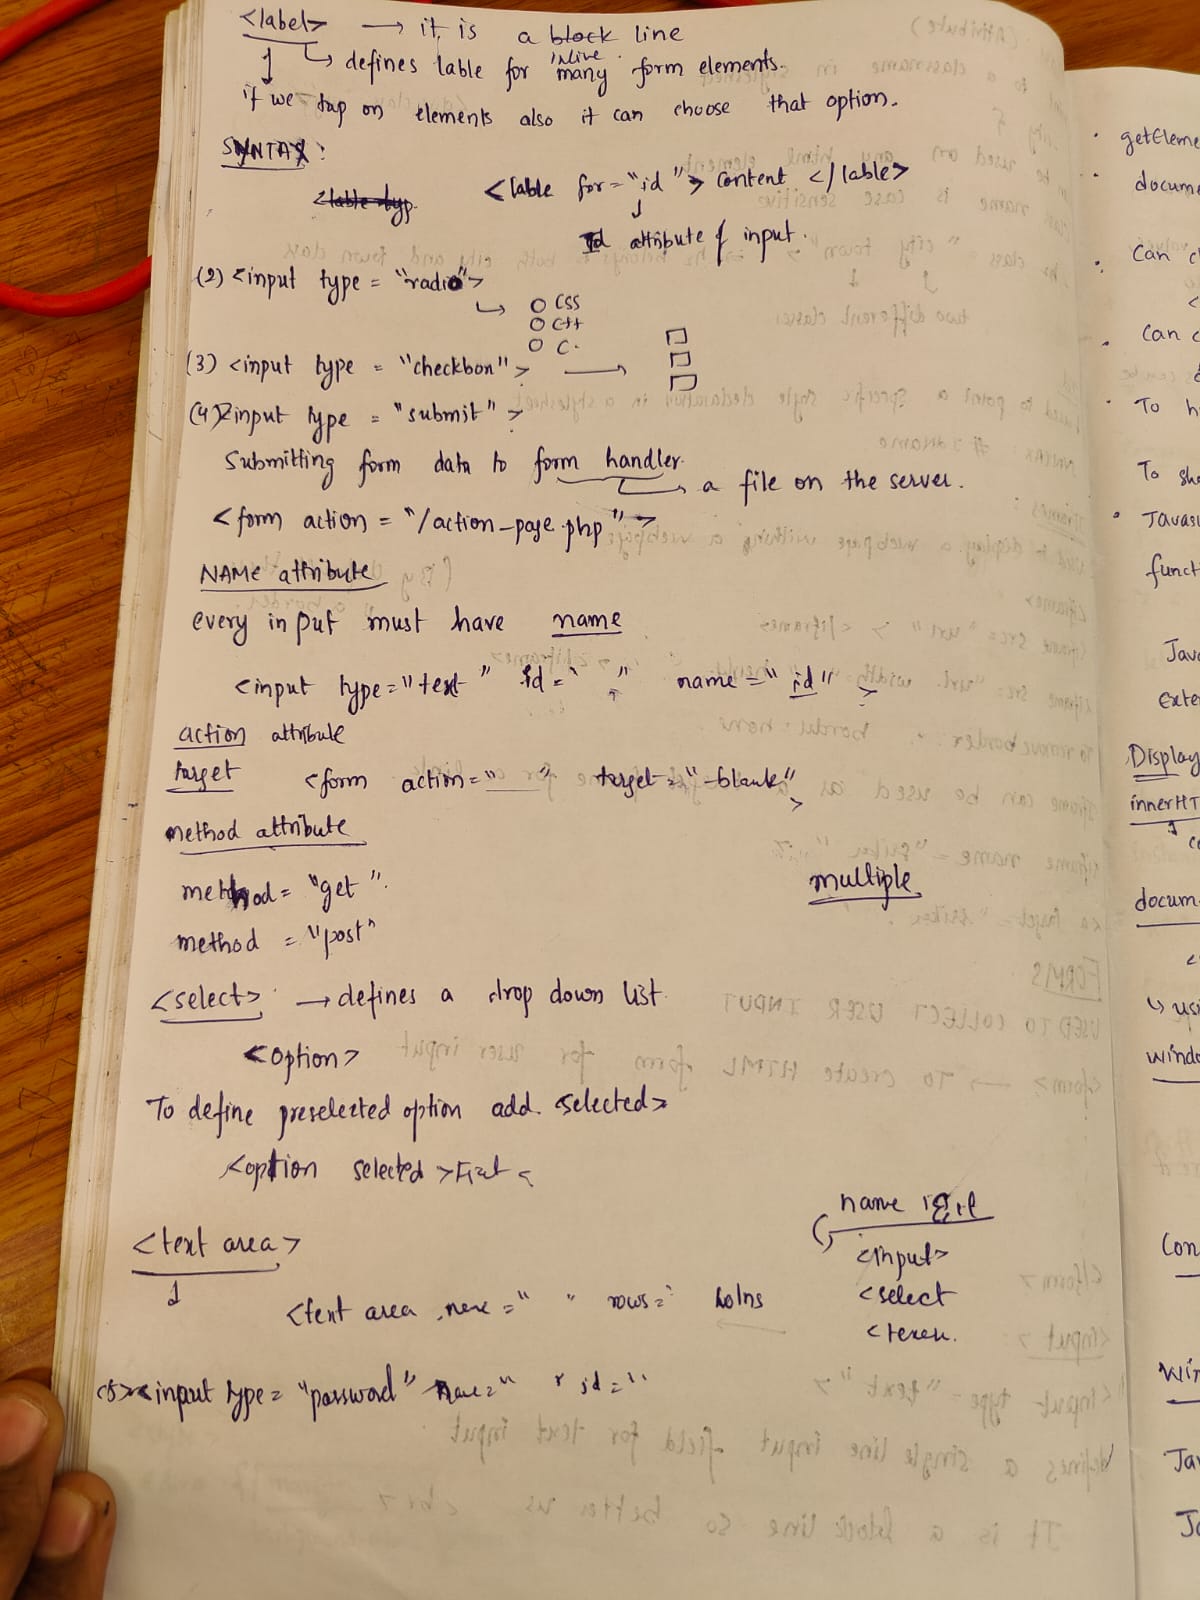 <label> → it is a block line
inline
↳ defines lable for many form elements.
if we tap on elements also it can choose that option.
SYNTAX:
<lable for="id"> content </lable>
id attribute of input.
(2) <input type = "radio">
↳ ○ CSS
○ C++
○ C.
(3) <input type = "checkbon"> →
(4) <input type = "submit" >
Submitting form data to form handler.
↳ a file on the server.
<form action = "/action_page.php">
NAME attribute
every input must have name
<input type="text" id=" " name="id" >
action attribute
target <form action="___" target="_blank">
method attribute
method = "get".
multiple
method = "post"
<select> → defines a drop down list.
<option>
To define preselected option add. selected>
<option selected > Fiat <
name
<text area>
<input>
<text area name=" " rows="
<select
(5) <input type = "password" name=" " id="
getEleme
docume
Can c
<
can c
To h
To sho
Javas
funct
Java
exte
Display
innerHT
docum
↳ usi
windo
Con
Win
Jav